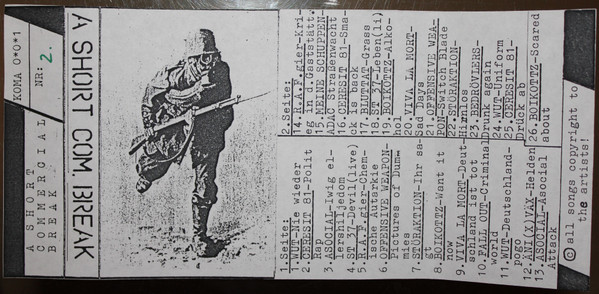 KOMA 0*0*1
NR: 2.
A SHORT
COMMERCIAL
BREAK
A SHORT COM. BREAK
1.Seite:
1.WUT-Nie wieder
2.CERESIT 81-Polit
Rap
3.ASOCIAL-Iwig el-
lershilljedom
4.ST 37-Devil(live)
5.R.A.F.gier-Chem-
ische Autarkie
6.OFFENSIVE WEAPON-
Pictures of Dum-
mies
7.STÖRAKTION-Ihr sa-
gt
8.BOIKOTTZ-Want it
now
9.VIVA LA MORT-Deut-
schland ist tot
10.FALL OUT-Criminal
world
11.WUT-Deutschland-
pogo
12.ANI(X)VAX-Helden
13.ASOCIAL-Asocial
Attack
2.Seite:
14.R.A.F.gier-Kri-
eg i.d.Gaststätt.
15.MEINE SCHUPPEN-
ADAC Straßenwacht
16.CERESIT 81-Sma-
ck is back
17.BLUTTAT-Grass
18.ST 37-Leben(li)
19.BOIKOTTZ-Alko-
hol
20.VIVA LA MORT-
Sad Days
21.OFFENSIVE WEA-
PON-Switch Blade
22.STÖRAKTION-
Hirnlos
23.BEDRÖVLERS-
Drunk again
24.WUT-Uniform
25.CERESIT 81-
Drück ab
26.BOIKOTTZ-Scared
about
© all songs copyright to
the artists!